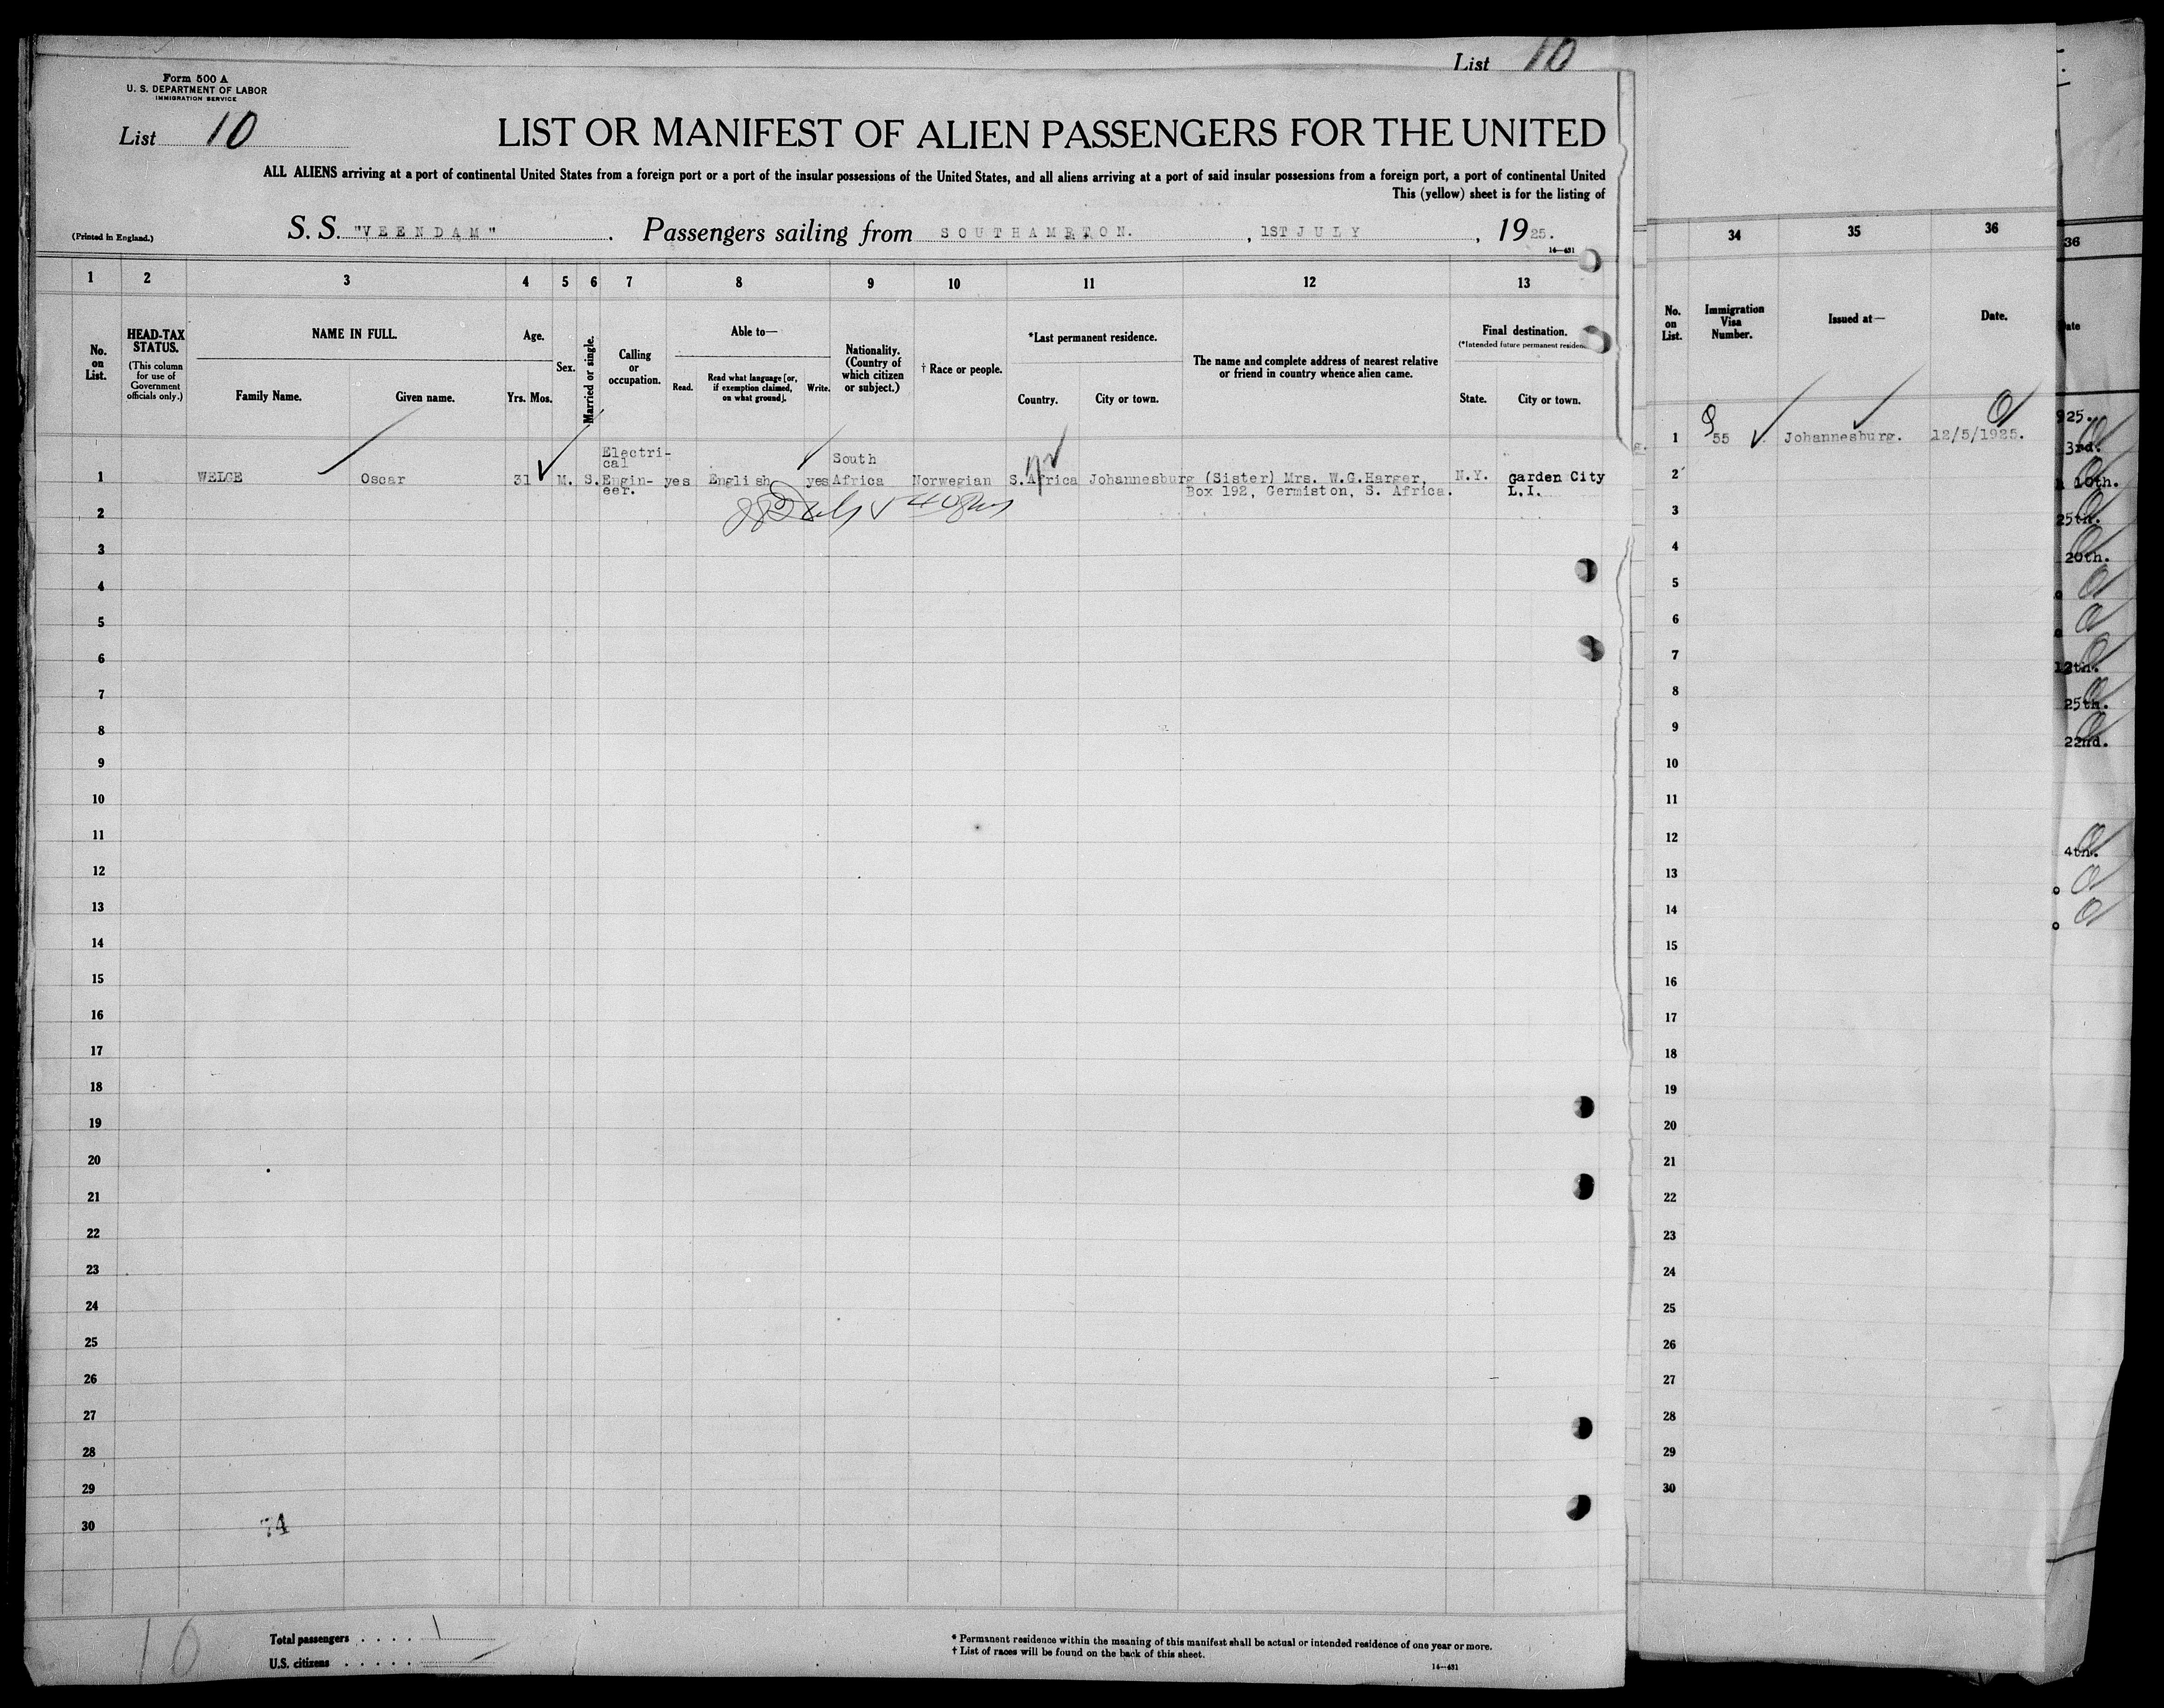 List 10
Form 500 A
U. S. DEPARTMENT OF LABOR
IMMIGRATION SERVICE
List 10
LIST OR MANIFEST OF ALIEN PASSENGERS FOR THE UNITED
ALL ALIENS arriving at a port of continental United States from a foreign port or a port of the insular possessions of the United States, and all aliens arriving at a port of said insular possessions from a foreign port, a port of continental United
This (yellow) sheet is for the listing of
(Printed in England.)
S. S. "VEENDAM". Passengers sailing from SOUTHAMPTON., 1ST JULY, 1925.
14—431
1 2 3 4 5 6 7 8 9 10 11 12 13
No. on List.
HEAD-TAX STATUS.
(This column for use of Government officials only.)
NAME IN FULL.
Family Name. Given name.
Age.
Yrs. Mos.
Sex.
Married or single.
Calling or occupation.
Able to—
Read. Read what language [or, if exemption claimed, on what ground]. Write.
Nationality. (Country of which citizen or subject.)
† Race or people.
*Last permanent residence.
Country. City or town.
The name and complete address of nearest relative or friend in country whence alien came.
Final destination.
(*Intended future permanent residen
State. City or town.
1 WELGE Oscar 31 M. S. Electri-cal Engin-eer. yes English yes South Africa Norwegian S.Africa Johannesburg (Sister) Mrs. W.G.Harger, N.Y. Garden City
Box 192, Germiston, S. Africa. L.I.
2
3
4
5
6
7
8
9
10
11
12
13
14
15
16
17
18
19
20
21
22
23
24
25
26
27
28
29
30
74
10
Total passengers . . . . 1
U.S. citizens . . . . .
* Permanent residence within the meaning of this manifest shall be actual or intended residence of one year or more.
† List of races will be found on the back of this sheet.
14—431
34 35 36
No. on List.
Immigration Visa Number.
Issued at—
Date.
1 55 Johannesburg. 12/5/1925.
2
3
4
5
6
7
8
9
10
11
12
13
14
15
16
17
18
19
20
21
22
23
24
25
26
27
28
29
30
36
ate
925.
3rd.
10th.
25th.
20th.
12th.
25th.
22nd.
4th.